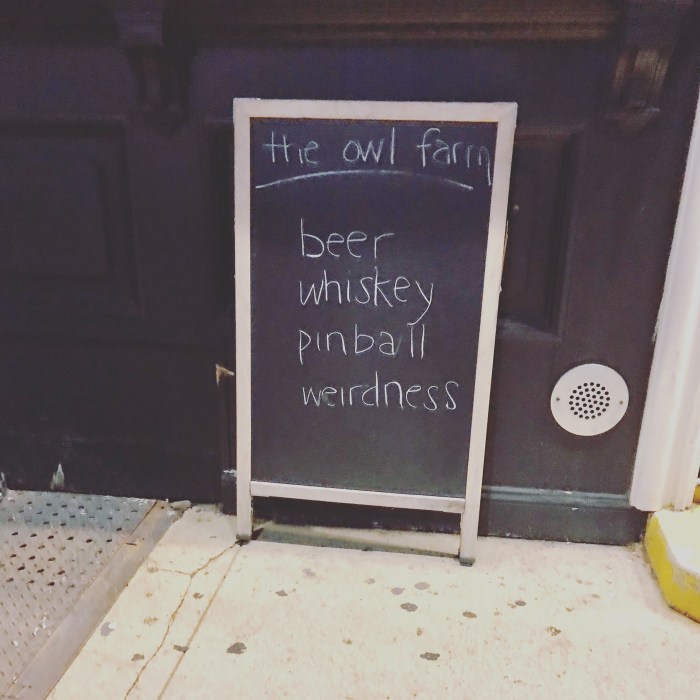 the owl farm
beer
whiskey
pinball
weirdness